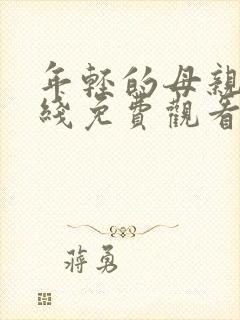 年轻的母親
綫免費觀看
蔣勇